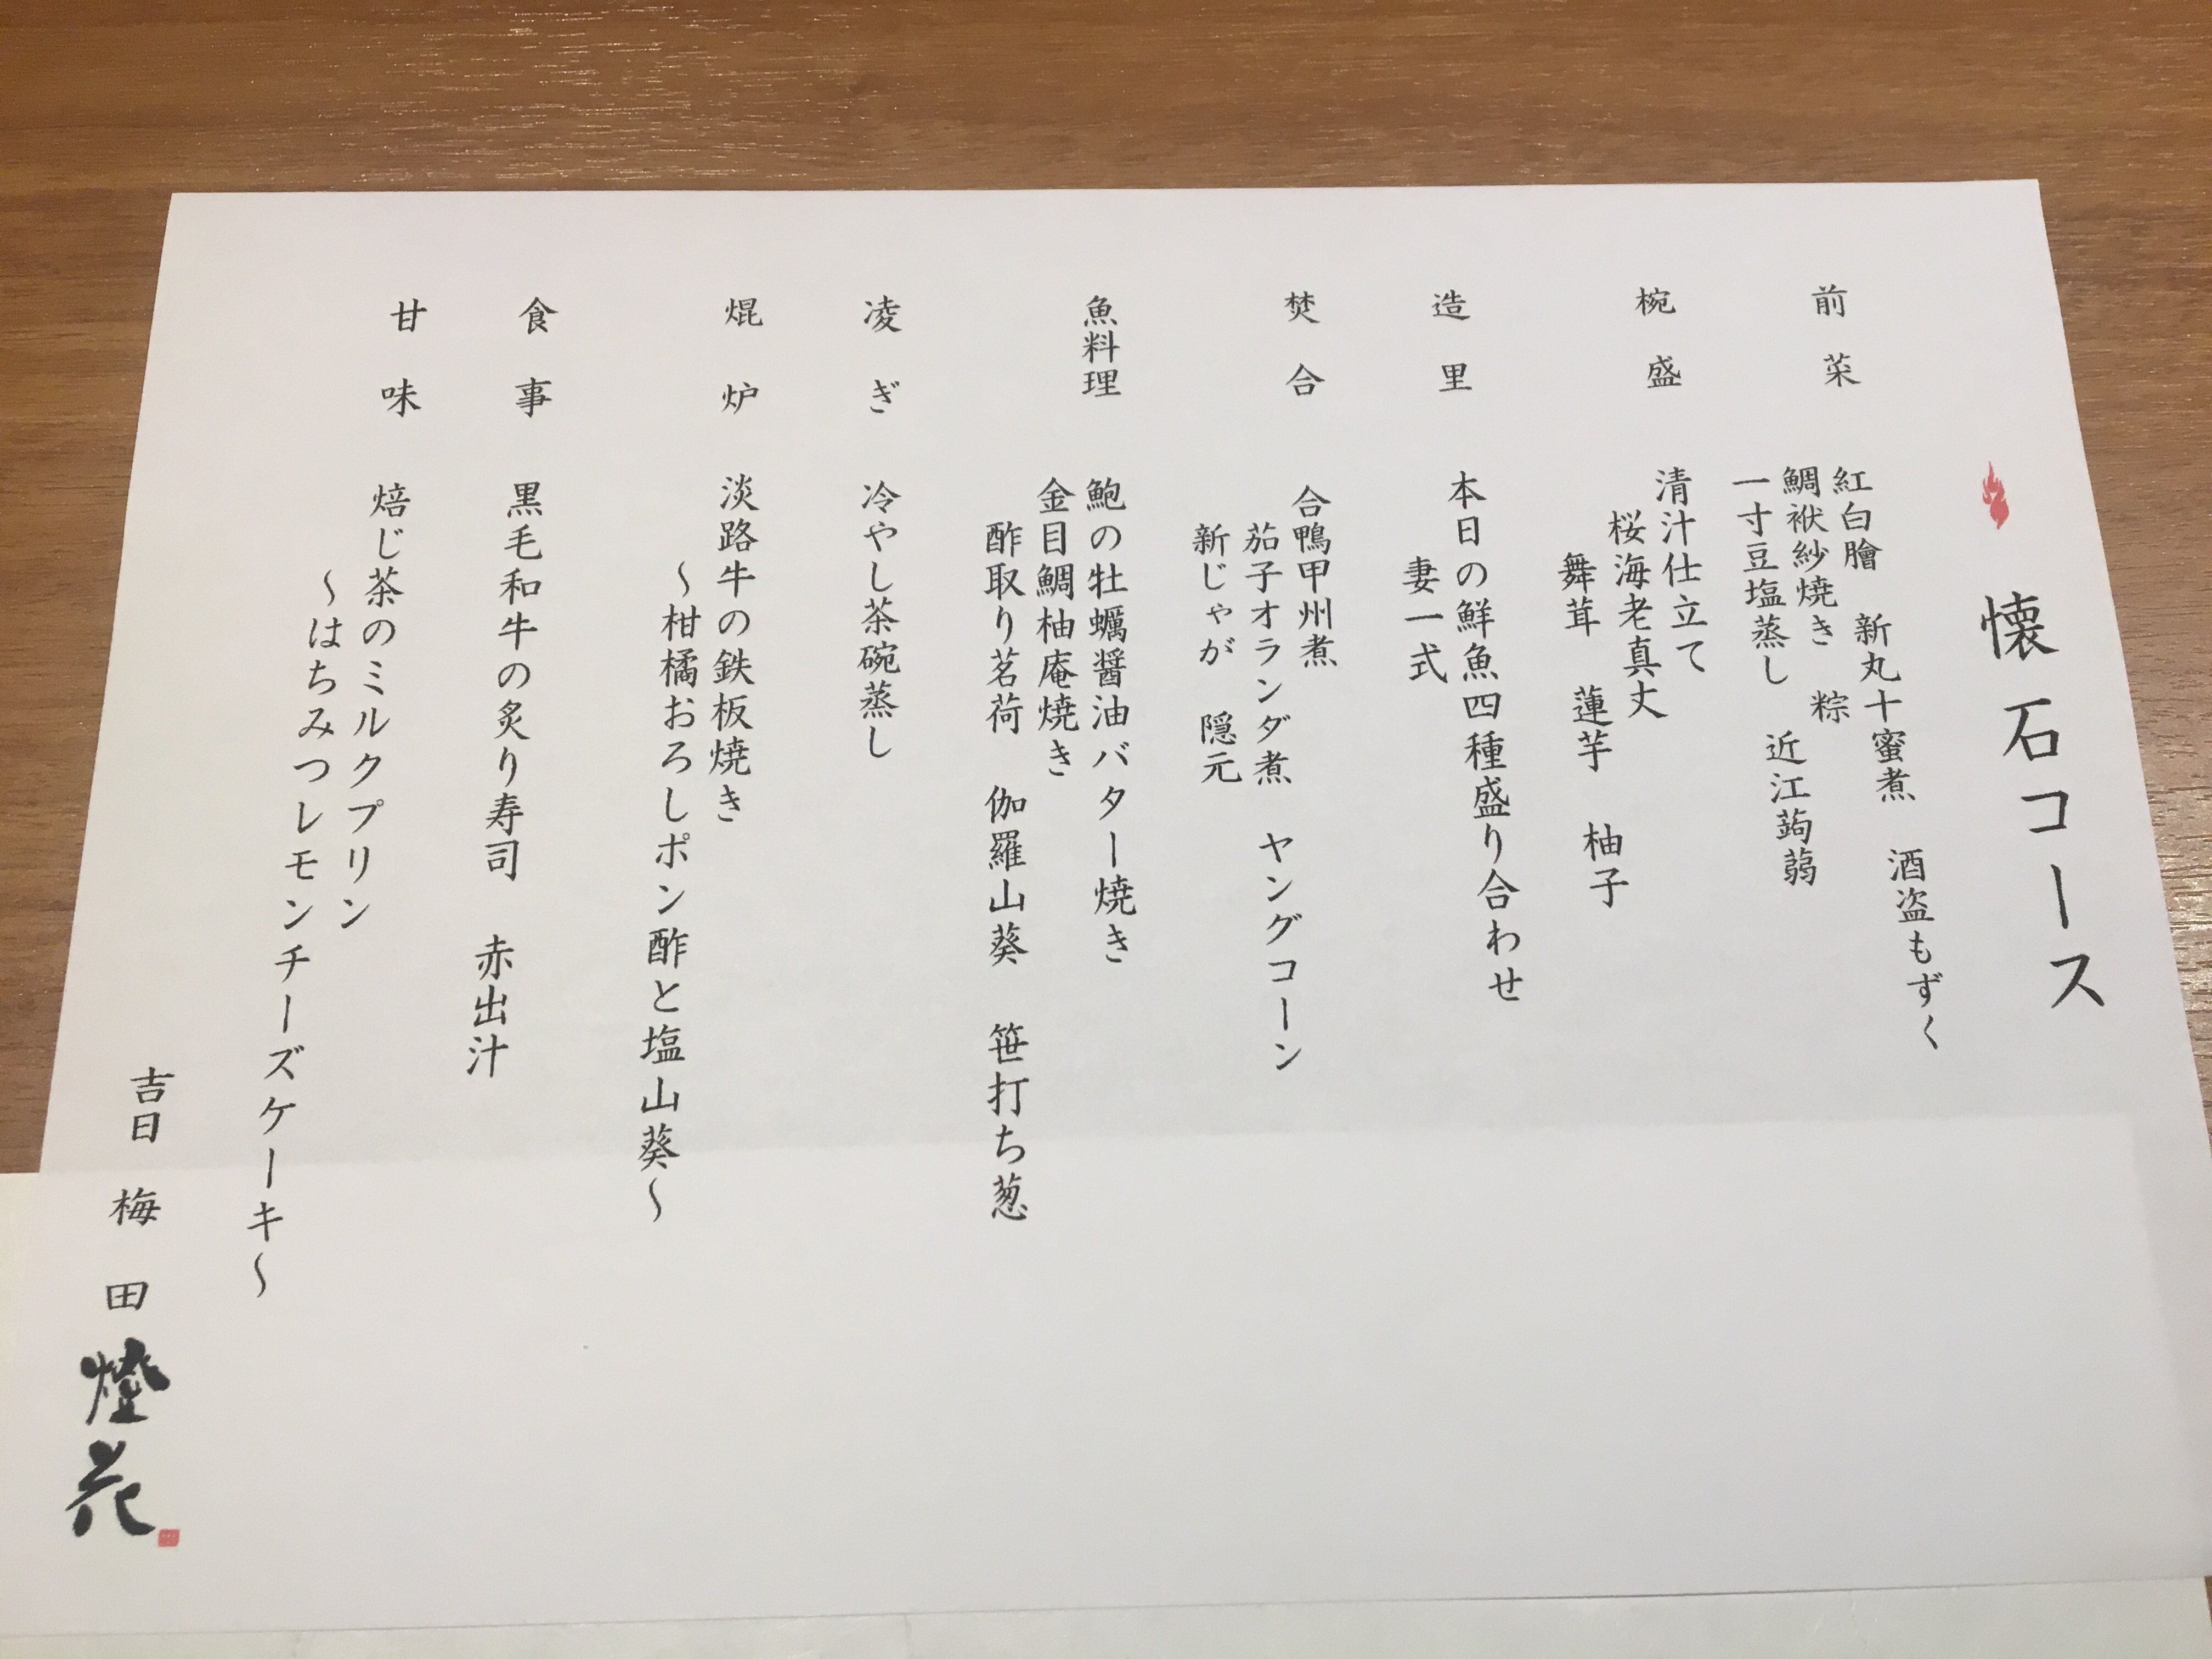 懐石コース
前菜 紅白膾 新丸十蜜煮 酒盗もずく
鯛袱紗焼き 粽
一寸豆塩蒸し 近江蒟蒻
椀盛 清汁仕立て
桜海老真丈
舞茸 蓮芋 柚子
造里 本日の鮮魚四種盛り合わせ
妻一式
焚合 合鴨甲州煮
茄子オランダ煮 ヤングコーン
新じゃが 隠元
魚料理 鮑の牡蠣醤油バター焼き
金目鯛柚庵焼き
酢取り茗荷 伽羅山葵 笹打ち葱
凌ぎ 冷やし茶碗蒸し
焜炉 淡路牛の鉄板焼き
〜柑橘おろしポン酢と塩山葵〜
食事 黒毛和牛の炙り寿司 赤出汁
甘味 焙じ茶のミルクプリン
〜はちみつレモンチーズケーキ〜
吉日 梅田 燈花